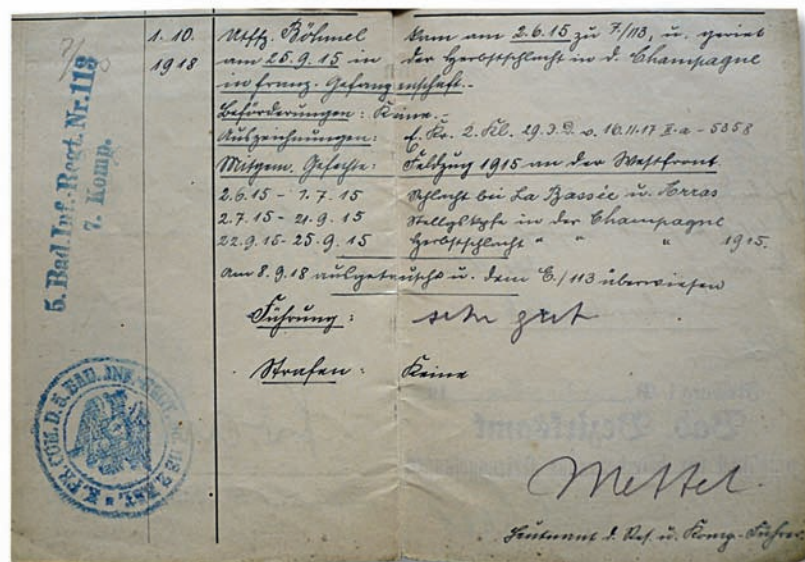 7/113
5. Bad. Inf.-Regt. Nr. 113
7. Komp.
1. 10.
1918
Utffz. Böhmel kam am 2.6.15 zu 7./113, u. geriet
am 25.9.15 in der Herbstschlacht in d. Champagne
in franz. Gefangenschaft.-
Beförderungen: Keine.-
Aufzeichnungen: E. Kr. 2. Kl. 29.3.D. v. 16.11.17 II.a - 5358
Mitgem. Gefechte: Feldzug 1915 an der Westfront
2.6.15 - 1.7.15 Schlacht bei La Bassée u. Arras
2.7.15 - 21.9.15 Stellgskpfe in der Champagne
22.9.15 - 25.9.15 Herbstschlacht " " " 1915.
Am 8.9.18 ausgetauscht u. dem E./113 überwiesen
Führung: sehr gut
Strafen: Keine
Bad. Bezirksamt
Mettel.
Leutnant d. Res. u. Komp.-Führer.